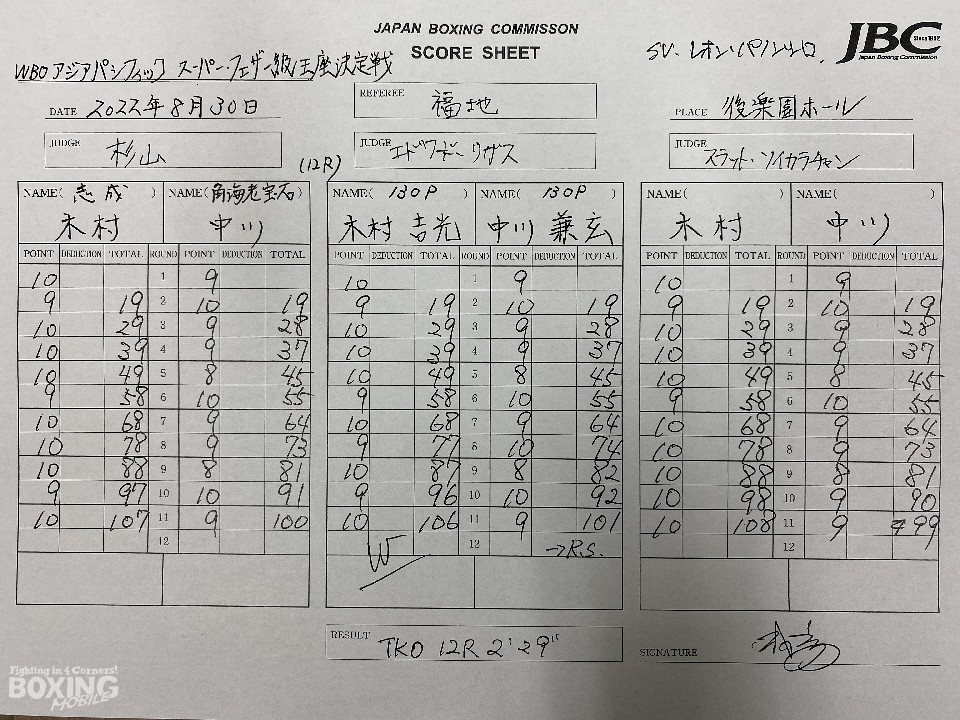 JAPAN BOXING COMMISSON
SCORE SHEET
JBC
Since1952
Japan Boxing Commission
SV. レオン・パノンシロ
WBO アジアパシフィック スーパー・フェザー級王座決定戦
DATE 2022年8月30日
REFEREE 福地
PLACE 後楽園ホール
JUDGE 杉山
JUDGE エドワード・リガス
JUDGE スラット・ソイカラチャン
(12R)
NAME( 志成 ) NAME( 角海老宝石 ) NAME( 130P ) NAME( 130P ) NAME( ) NAME( )
木村 中川 木村 吉光 中川 兼玄 木村 中川
POINT DEDUCTION TOTAL ROUND POINT DEDUCTION TOTAL POINT DEDUCTION TOTAL ROUND POINT DEDUCTION TOTAL POINT DEDUCTION TOTAL ROUND POINT DEDUCTION TOTAL
10 1 9 10 1 9 10 1 9
9 19 2 10 19 9 19 2 10 19 9 19 2 10 19
10 29 3 9 28 10 29 3 9 28 10 29 3 9 28
10 39 4 9 37 10 39 4 9 37 10 39 4 9 37
10 49 5 8 45 10 49 5 8 45 10 49 5 8 45
9 58 6 10 55 9 58 6 10 55 9 58 6 10 55
10 68 7 9 64 10 68 7 9 64 10 68 7 9 64
10 78 8 9 73 9 77 8 10 74 10 78 8 9 73
10 88 9 8 81 10 87 9 8 82 10 88 9 8 81
9 97 10 10 91 9 96 10 10 92 10 98 10 9 90
10 107 11 9 100 10 106 11 9 101 10 108 11 9 99
12 12 →R.S. 12
W
RESULT TKO 12R 2'29"
SIGNATURE
Fighting in 4 Corners!
BOXING
MOBILE